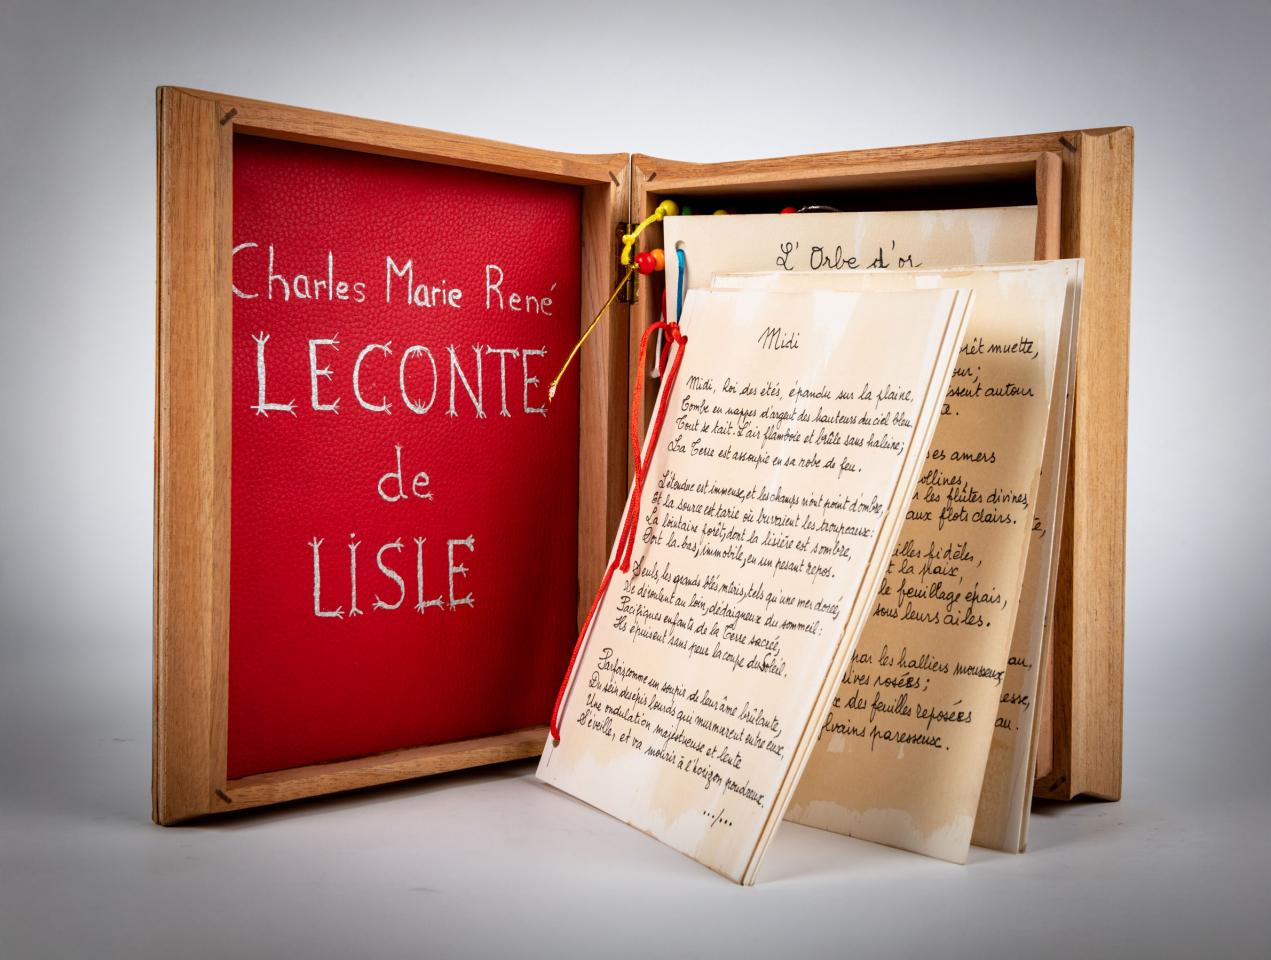 Charles Marie René
LECONTE
de
LISLE
L'Orbe d'or
Midi
Midi, Roi des étés, épandu sur la plaine,
Tombe en nappes d'argent des hauteurs du ciel bleu.
Tout se tait. L'air flamboie et brûle sans haleine;
La Terre est assoupie en sa robe de feu.
L'étendue est immense, et les champs n'ont point d'ombre,
Et la source est tarie où buvaient les troupeaux:
La lointaine forêt, dont la lisière est sombre,
Dort là-bas, immobile, en un pesant repos.
Seuls, les grands blés mûris, tels qu'une mer dorée,
Se déroulent au loin, dédaigneux du sommeil:
Pacifiques enfants de la Terre sacrée,
Ils épuisent sans peur la coupe du Soleil.
Parfois, comme un soupir de leur âme brûlante,
Du sein des épis lourds qui murmurent entre eux,
Une ondulation majestueuse et lente
S'éveille, et va mourir à l'horizon poudreux.
.../...
rêt muette,
our;
ssent autour
es amers
ollines,
les flûtes divines,
aux flots clairs.
illes fidèles,
t la paix,
le feuillage épais,
sous leurs ailes.
par les halliers mousseux,
ives rosées;
x des feuilles reposées
lvains paresseux.
te,
au,
esse,
au.